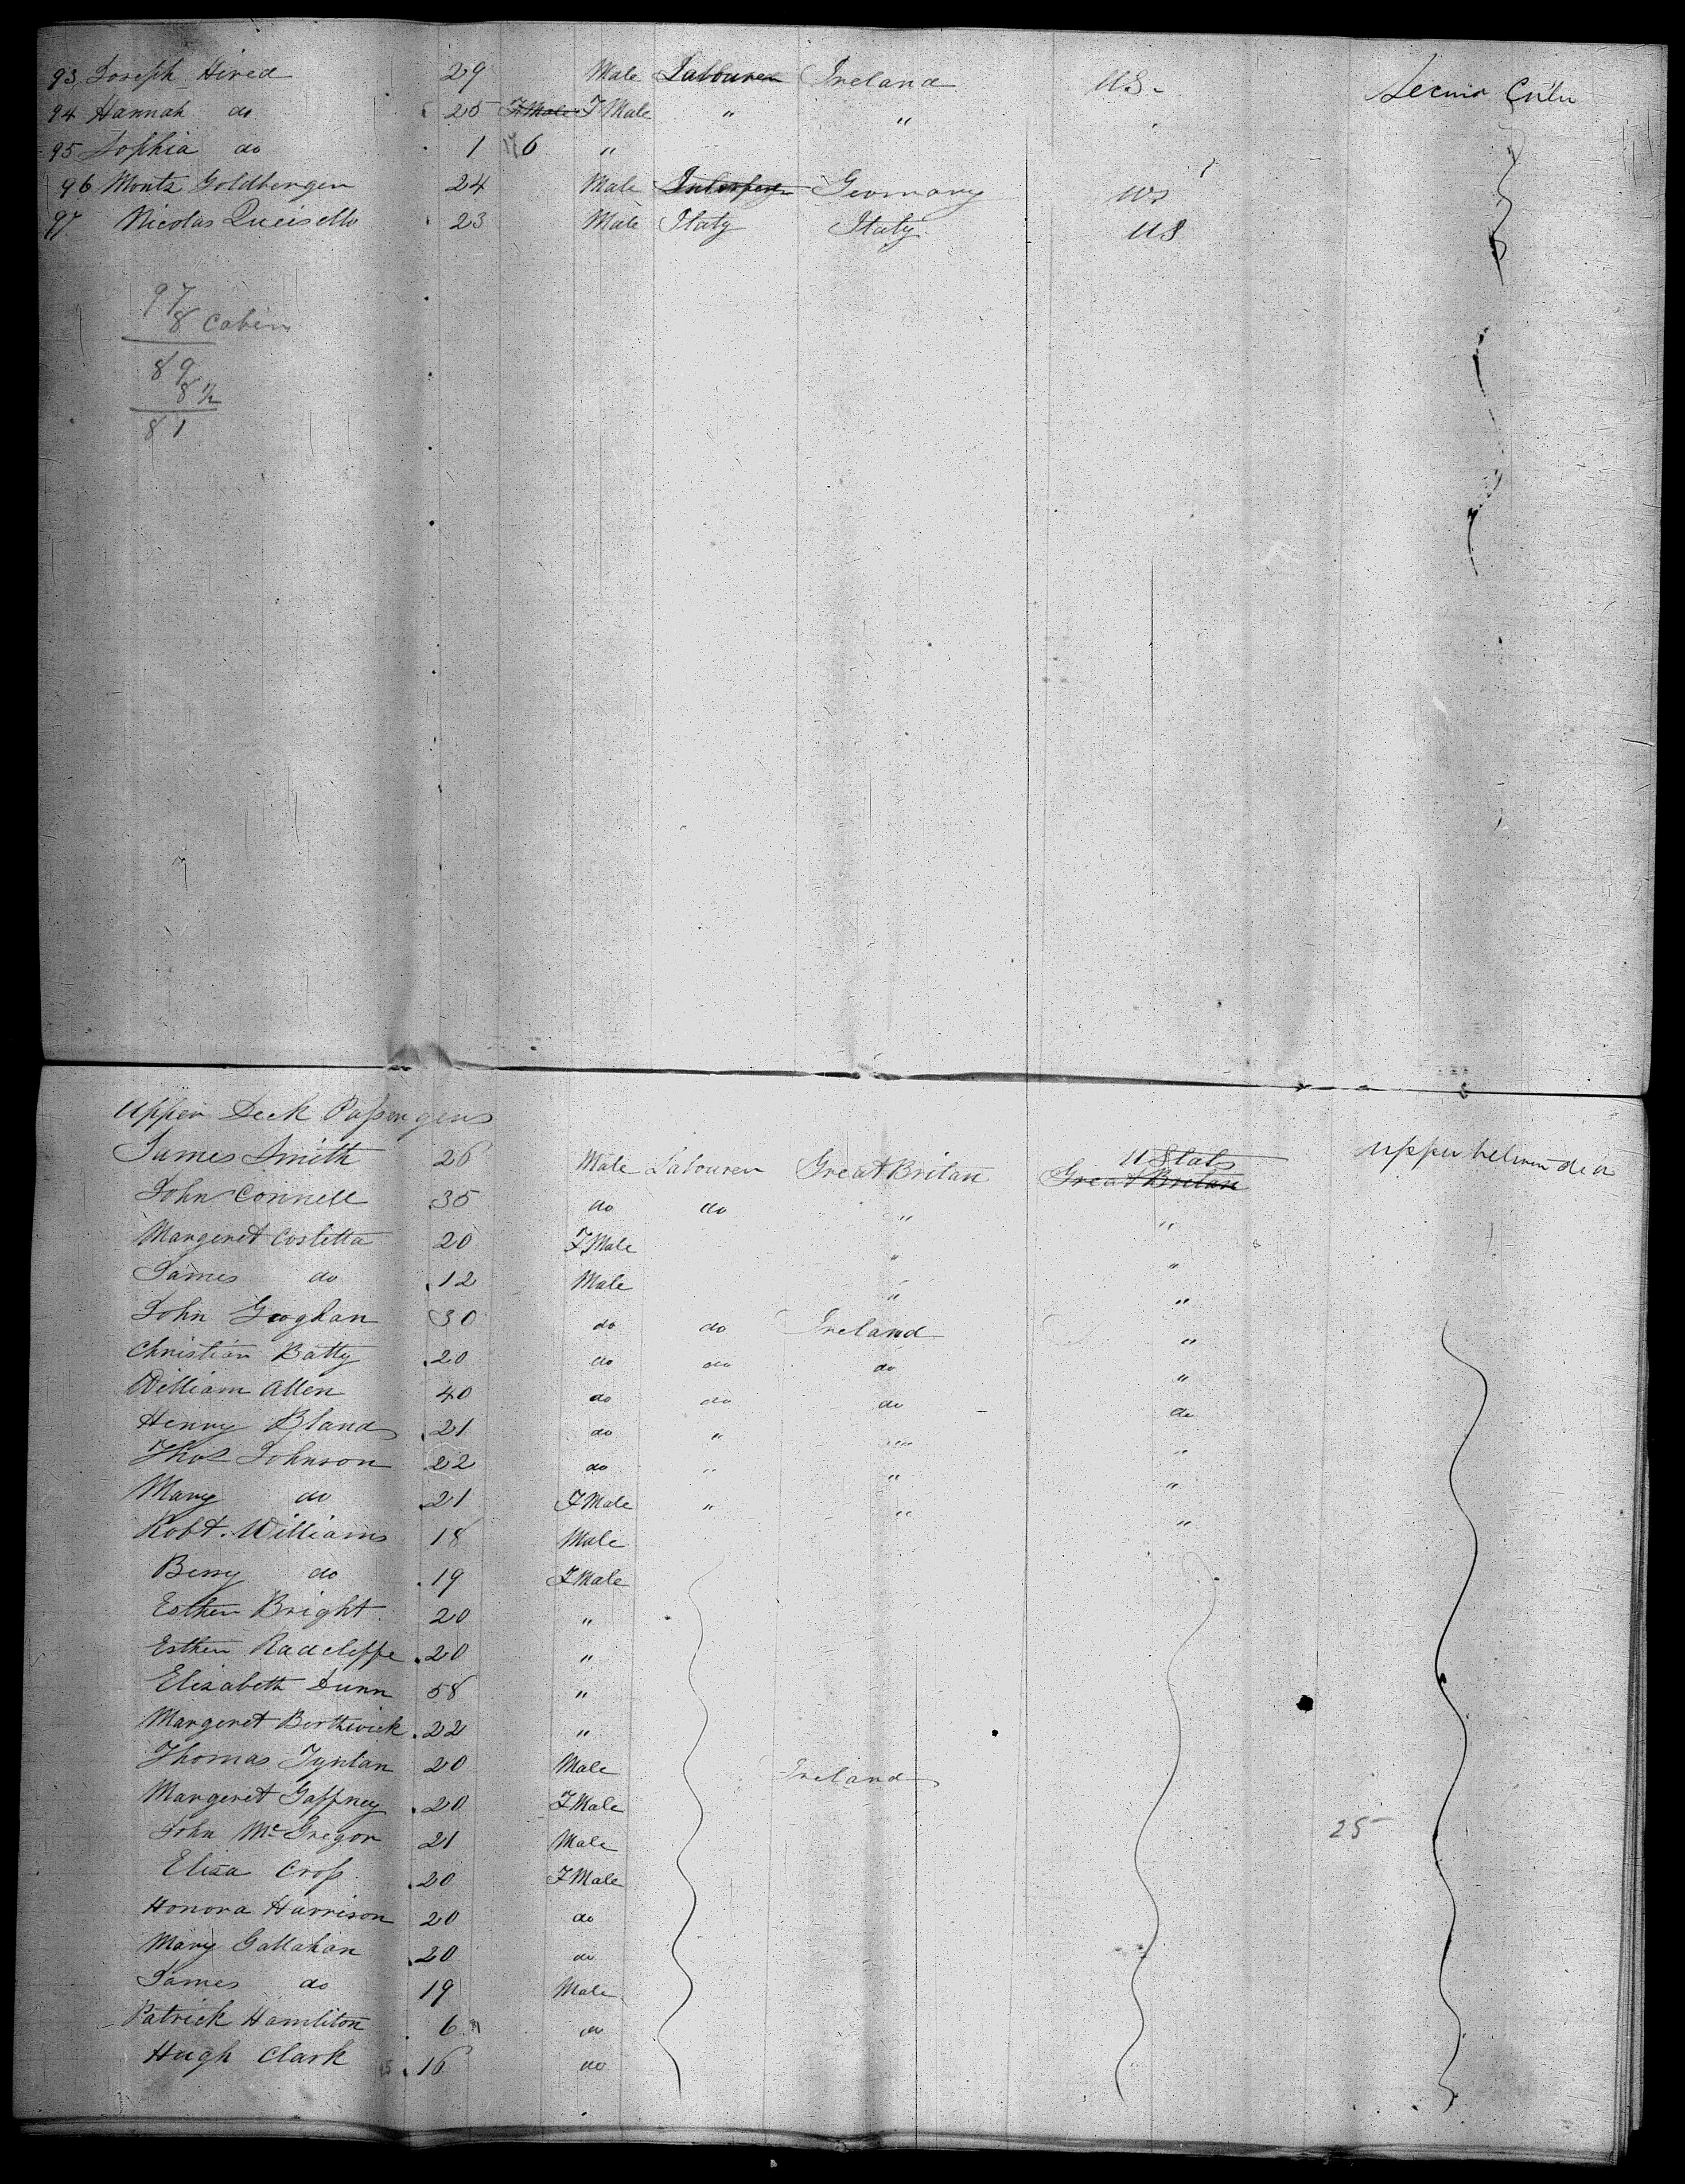 93 Joseph Hired 29 Male Labourer Ireland U S.
94 Hannah do 25 F Male F Male " "
95 Sophia do 1 6 "
96 Montz Goldbergen 24 Male Germany US
97 Nicolas 23 Male Italy Italy US
97
8 Cabin
89
8 ½
81
Upper Deck Passengers
James Smith 26 Male Labourer Great Britan U States Great Britan Upper between deck
John Connell 35 do do " "
Margeret Costetta 20 F Male " "
James do 12 Male " "
John Geoghan 30 do do Ireland "
Christian Batty 20 do do do "
William Allen 40 do do do do
Henry Bland 21 do " " "
Thos Johnson 22 do " " "
Mary do 21 F Male " " "
Robt. Williams 18 Male
Bessy do 19 F Male
Esther Bright 20 "
Esther Radcleffe 20 "
Elizabeth Dunn 58 "
Margeret Borthwick 22 "
Thomas Tynlan 20 Male Ireland
Margeret Gaffney 20 F Male
John McGregor 21 Male 25
Eliza Cross 20 F Male
Honora Harrison 20 do
Mary Gallahan 20 do
James do 19 Male
Patrick Hamliton 6 do
Hugh Clark 16 do